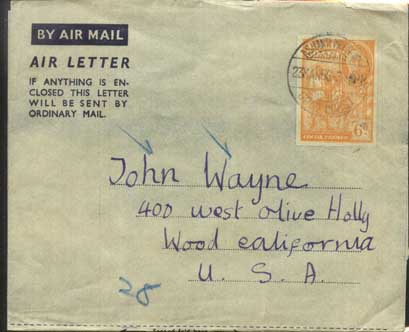 BY AIR MAIL
AIR LETTER
IF ANYTHING IS EN-
CLOSED THIS LETTER
WILL BE SENT BY
ORDINARY MAIL.
6D
John Wayne
400 west olive Holly
Wood california
U. S. A.
28